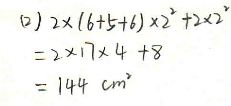 (2) 2×(6+5+6)×2²+2×2²
=2×17×4+8
=144 cm²